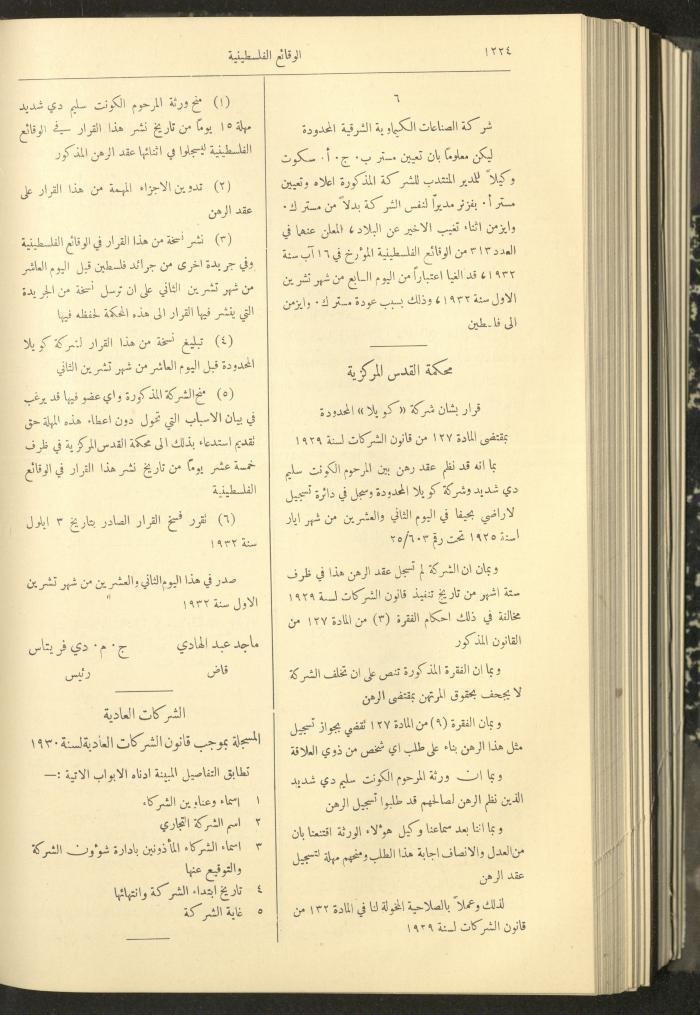 ١٢٢٤
الوقائع الفلسطينية
٦
شركة الصناعات الكيماوية الشرقية المحدودة
ليكن معلوماً بان تعيين مستر ب٠ ج٠ أ٠ سكوت
وكيلاً للمدير المنتدب للشركة المذكورة اعلاه وتعيين
مستر أ٠ بفزنر مديراً لنفس الشركة بدلاً من مستر ك٠
وايزمن اثناء تغيب الاخير عن البلاد، المعلن عنهما في
العدد ٣١٣ من الوقائع الفلسطينية المؤرخ في ١٦ آب سنة
١٩٣٢، قد الغيا اعتباراً من اليوم السابع من شهر تشرين
الاول سنة ١٩٣٢، وذلك بسبب عودة مستر ك٠ وايزمن
الى فلسطين
محكمة القدس المركزية
قرار بشان شركة «كويلا» المحدودة
بمقتضى المادة ١٢٧ من قانون الشركات لسنة ١٩٢٩
بما انه قد نظم عقد رهن بين المرحوم الكونت سليم
دي شديد وشركة كويلا المحدودة وسجل في دائرة تسجيل
لاراضي بحيفا في اليوم الثاني والعشرين من شهر ايار
لسنة ١٩٢٥ تحت رقم ٢٥/٦٠٣
وبمان ان الشركة لم تسجل عقد الرهن هذا في ظرف
ستة اشهر من تاريخ تنفيذ قانون الشركات لسنة ١٩٢٩
مخالفة في ذلك احكام الفقرة (٣) من المادة ١٢٧ من
القانون المذكور
وبما ان الفقرة المذكورة تنص على ان تخلف الشركة
لا يجحف بحقوق المرتهن بمقتضى الرهن
وبمان الفقرة (٩) من المادة ١٢٧ تقضي بجواز تسجيل
مثل هذا الرهن بناء على طلب اي شخص من ذوي العلاقة
وبما ان ورثة المرحوم الكونت سليم دي شديد
الذين نظم الرهن لصالحهم قد طلبوا تسجيل الرهن
وبما اننا بعد سماعنا وكيل هؤلاء الورثة اقتنعنا بان
من العدل والانصاف اجابة هذا الطلب ومنحهم مهلة لتسجيل
عقد الرهن
لذلك وعملاً بالصلاحية المخولة لنا في المادة ١٣٢ من
قانون الشركات لسنة ١٩٢٩
(١) منح ورثة المرحوم الكونت سليم دي شديد
مهلة ١٥ يوماً من تاريخ نشر هذا القرار في الوقائع
الفلسطينية ليسجلوا في اثنائها عقد الرهن المذكور
(٢) تدوين الاجزاء المهمة من هذا القرار على
عقد الرهن
(٣) نشر نسخة من هذا القرار في الوقائع الفلسطينية
وفي جريدة اخرى من جرائد فلسطين قبل اليوم العاشر
من شهر تشرين الثاني على ان ترسل نسخة من الجريدة
التي ينشر فيها القرار الى هذه المحكمة لحفظه فيها
(٤) تبليغ نسخة من هذا القرار لشركة كويلا
المحدودة قبل اليوم العاشر من شهر تشرين الثاني
(٥) منح الشركة المذكورة واي عضو فيها قد يرغب
في بيان الاسباب التي تحول دون اعطاء هذه المهلة حق
تقديم استدعاء بذلك الى محكمة القدس المركزية في ظرف
خمسة عشر يوماً من تاريخ نشر هذا القرار في الوقائع
الفلسطينية
(٦) نقرر فسخ القرار الصادر بتاريخ ٣ ايلول
سنة ١٩٣٢
صدر في هذا اليوم الثاني والعشرين من شهر تشرين
الاول سنة ١٩٣٢
ماجد عبد الهادي ج٠ م٠ دي فريتاس
قاض رئيس
الشركات العادية
المسجلة بموجب قانون الشركات العادية لسنة ١٩٣٠
تطابق التفاصيل المبينة ادناه الابواب الاتية :—
١ اسماء وعناوين الشركاء
٢ اسم الشركة التجاري
٣ اسماء الشركاء المأذونين بادارة شؤون الشركة
والتوقيع عنها
٤ تاريخ ابتداء الشركة وانتهائها
٥ غاية الشركة